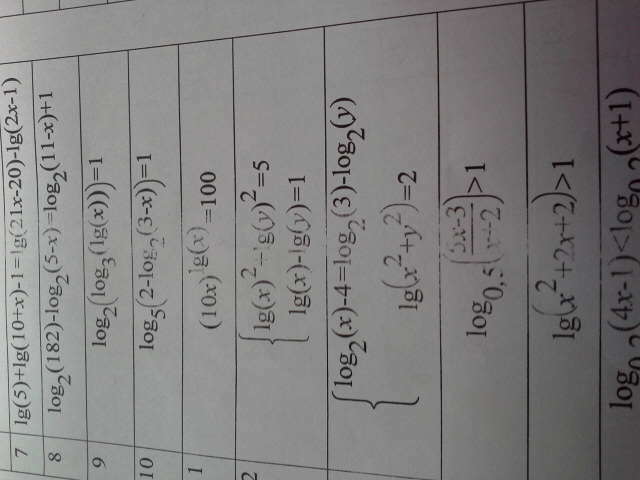 7 lg(5)+lg(10+x)-1=lg(21x-20)-lg(2x-1)
8 log₂(182)-log₂(5-x)=log₂(11-x)+1
9 log₂(log₃(lg(x)))=1
10 log₅(2-log₂(3-x))=1
1 (10x)^lg(x)=100
2 lg(x)²+lg(y)²=5
lg(x)-lg(y)=1
log₂(x)-4=log₂(3)-log₂(y)
lg(x²+y²)=2
log₀,₅((2x-3)/(x+2))>1
lg(x²+2x+2)>1
log₀,₂(4x-1)<log₀,₂(x+1)